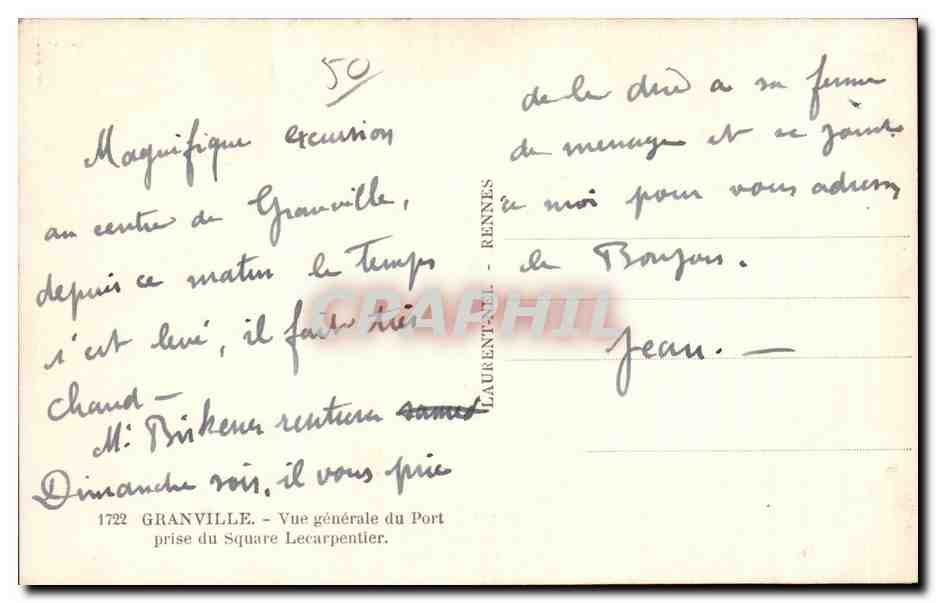 50
Magnifique excursion
au centre de Granville,
depuis ce matin le Temps
s'est levé, il fait très
chaud —
Mr Birkener rentrera samedi
Dimanche soir, il vous prie
1722 GRANVILLE. - Vue générale du Port
prise du Square Lecarpentier.
LAURENT-NEL - RENNES
de le dire a sa femme
de menage et se joint
a moi pour vous adresser
le Bonjour.
Jean. —
CPAPHIL